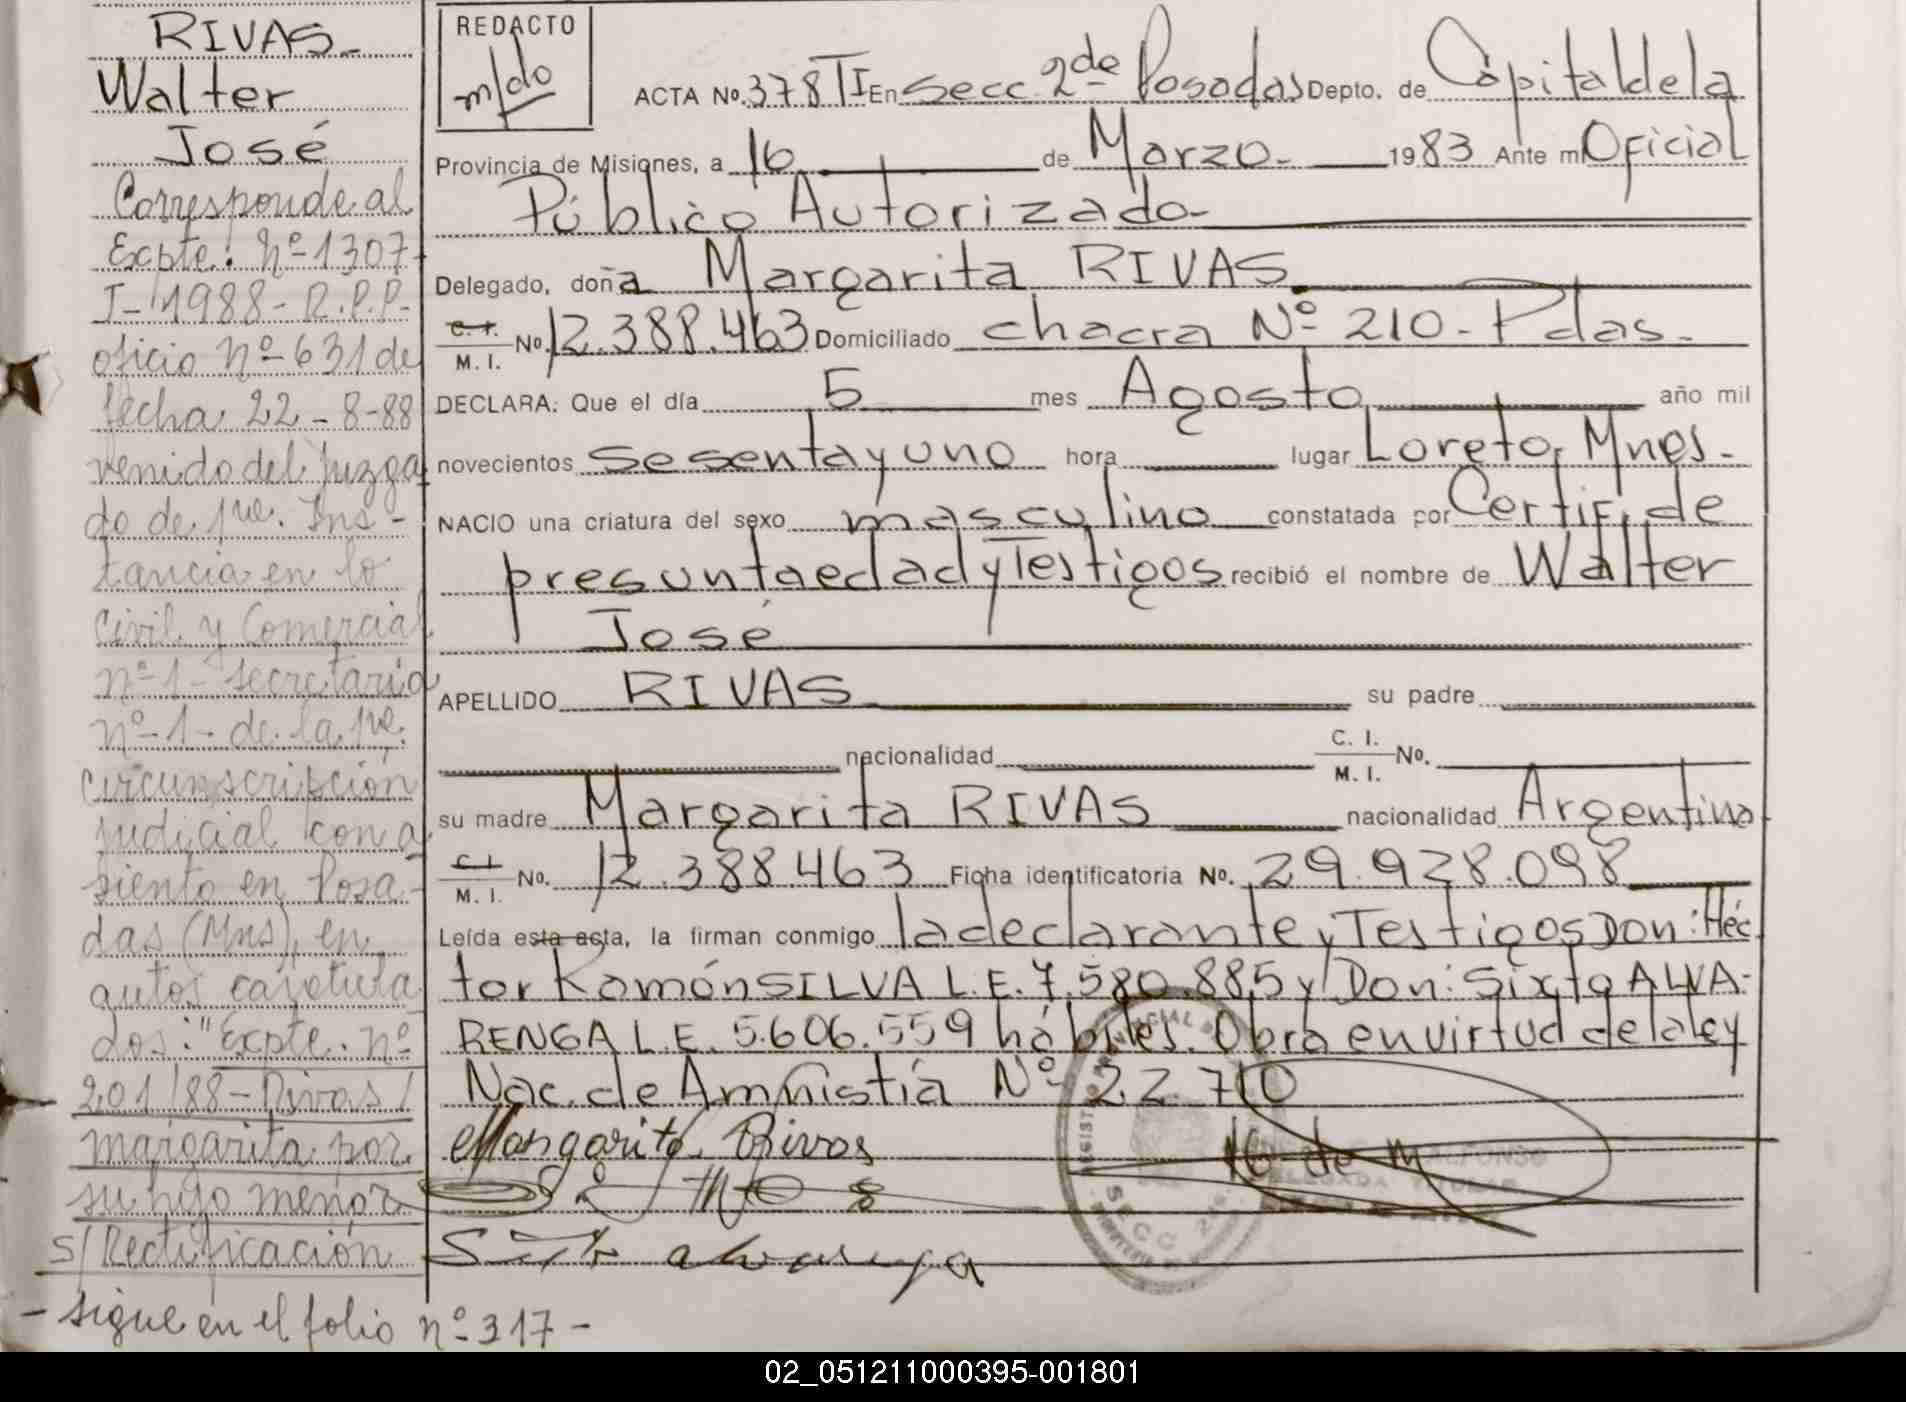 RIVAS-
Walter
José
Corresponde al
Expte: nº 1307-
I-1988-R.P.P.-
oficio nº 631 de
fecha 22-8-88
venido del Juzga
do de 1ra. Ins-
tancia en lo
Civil y Comercial
nº 1- secretaría
nº 1- de la 1ra.
circunscripción
judicial con a
siento en Posa-
das (Mns), en
autos caratula
dos: "Expte. nº
201/88-Rivas/
margarita por
su hijo menor
s/Rectificación
- sigue en el folio nº 317 -
REDACTO
m/do
ACTA No. 378 TI En secc. 2da Posadas Depto. de Capital de la
Provincia de Misiones, a 16 de Marzo- 1983 Ante mi Oficial
Público Autorizado-
Delegado, doña Margarita RIVAS
C. I. M. I. No. 12.388.463 Domiciliado chacra Nº 210-Pdas.-
DECLARA: Que el día 5 mes Agosto año mil
novecientos sesenta y uno hora lugar Loreto, Mnes.-
NACIO una criatura del sexo masculino constatada por Certif. de
presunta edad y Testigos recibió el nombre de Walter
José
APELLIDO RIVAS su padre
nacionalidad C. I. M. I. No.
su madre Margarita RIVAS nacionalidad Argentina
C. I. M. I. No. 12.388.463 Ficha identificatoria No. 29.928.098
Leída esta acta, la firman conmigo la declarante y Testigos Don: Héc
tor Ramón SILVA L.E. 7.580.885 y Don: Sixto ALVA-
RENGA L.E. 5.606.559 hábiles. Obra en virtud de la ley
Nac. de Amnistía Nº 22.710
Margarita Rivas
Sixto alvarenga
SECC 2da.
02_051211000395-001801